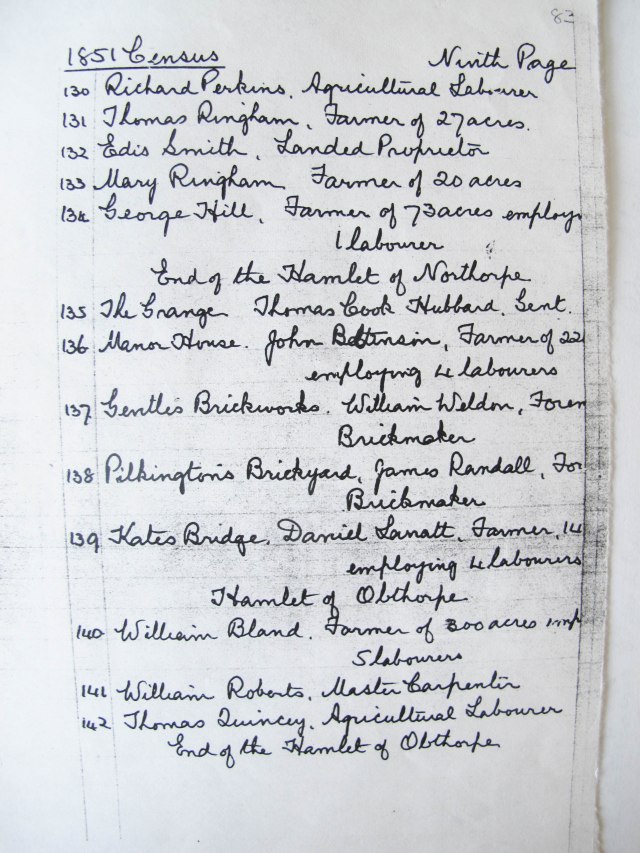 83
1851 Census Ninth Page
130 Richard Perkins, Agricultural Labourer
131 Thomas Ringham, Farmer of 27 acres.
132 Edis Smith, Landed Proprietor
133 Mary Ringham Farmer of 20 acres
134 George Hill, Farmer of 73 acres employi
1 labourer
End of the Hamlet of Northorpe
135 The Grange Thomas Cook Hubbard, Gent.
136 Manor House. John Bettinson, Farmer of 22
employing 4 labourers
137 Gentles Brickworks. William Weldon, Forem
Brickmaker
138 Pilkington's Brickyard, James Randall, For
Brickmaker
139 Kates Bridge, Daniel Farmer, 14
employing 4 labourers
Hamlet of Obthorpe
140 William Bland. Farmer of 300 acres emp
5 labourers
141 William Roberts, Master Carpenter
142 Thomas Quincey, Agricultural Labourer
End of the Hamlet of Obthorpe